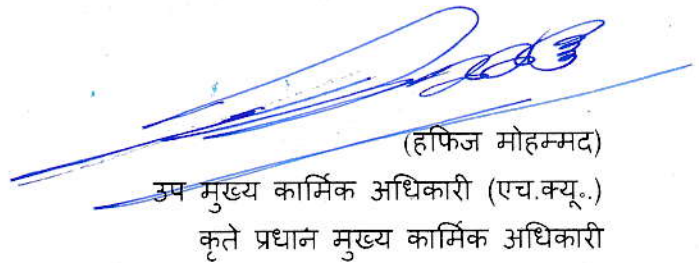 (हफिज मोहम्मद)
उप मुख्य कार्मिक अधिकारी (एच.क्यू.)
कृते प्रधान मुख्य कार्मिक अधिकारी